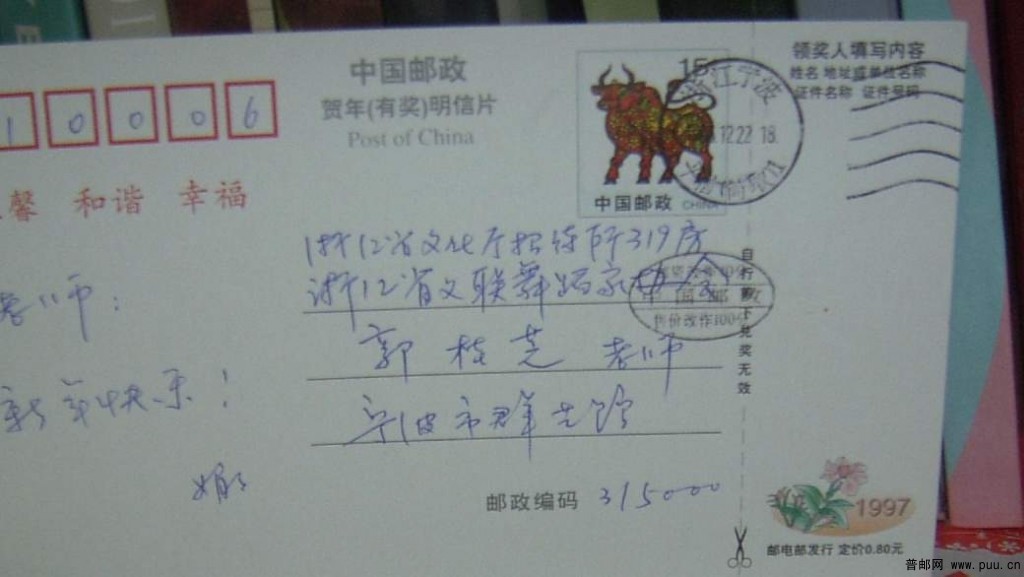 中国邮政
贺年(有奖)明信片
Post of China
15
中国邮政
CHINA
12.22 18
江宁波
领奖人填写内容
姓名 地址或单位名称
证件名称 证件号码
1 0 0 0 6
馨 和谐 幸福
老师:
新年快乐!
浙江省文化厅招待所319房
浙江省文联舞蹈家协会
郭桂芝 老师
宁波市群艺馆
中国邮政
售价改作100分
自行剪下兑奖无效
邮政编码 315000
1997
邮电部发行 定价0.80元
普邮网 www.puu.cn